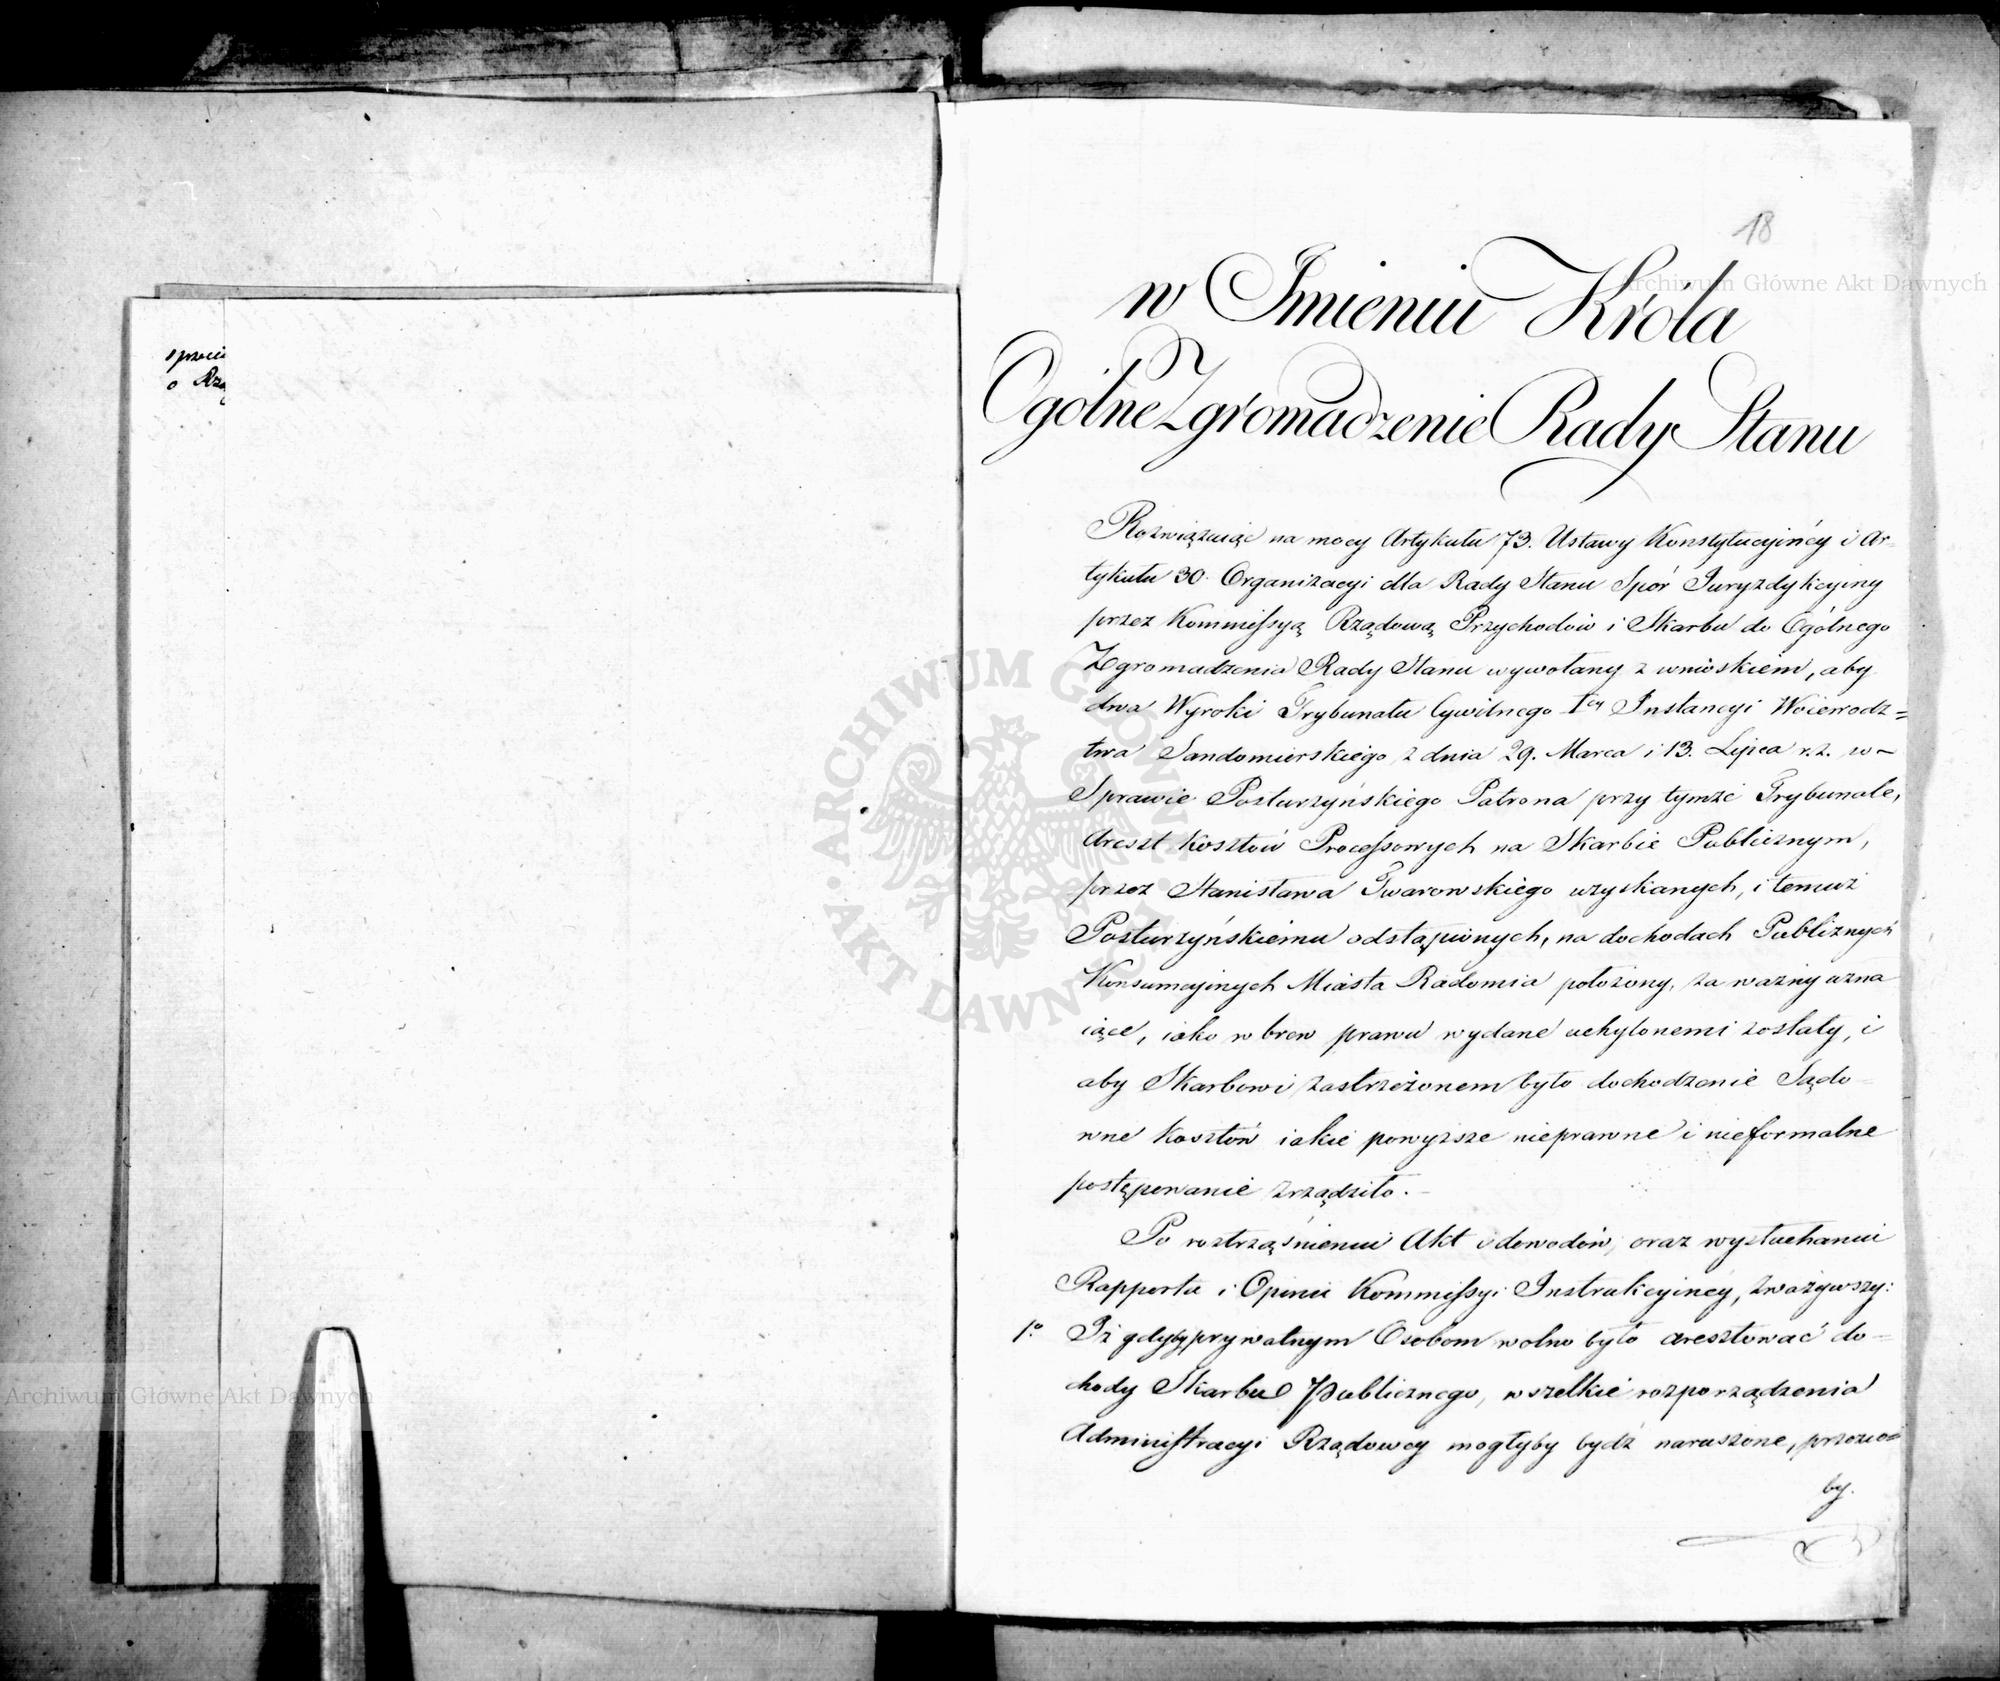 sprzeci
o Rzą
18
w Imieniu Króla
Ogólne Zgromadzenie Rady Stanu
Rozwiązuiąc na mocy Artykułu 73. Ustawy Konstytucyinéy i Ar-
tykułu 30. Organizacyi dla Rady Stanu Spór Juryzdykcyiny
przez Kommissyą Rządową Przychodów i Skarbu do Ogólnego
Zgromadzenia Rady Stanu wywołany z wnioskiem, aby
dwa Wyroki Trybunału Cywilnego Iéy Instancyi Woiewodz=
twa Sandomierskiego z dnia 29. Marca i 13. Lipca r. z. w
Sprawie Posturzyńskiego Patrona przy tymże Trybunale,
areszt kosztów Processowych na Skarbie Publicznym,
przez Stanisława Twarowskiego uzyskanych, i temuż
Posturzyńskiemu odstąpionych, na dochodach Publicznych
Konsumcyinych Miasta Radomia położony, za ważny uzna
iące, iako wbrew prawu wydane uchylonemi zostały, i
aby Skarbowi zastrzeżonem było dochodzenie Sądo-
wne kosztów iakie powyższe nieprawne i nieformalne
postępowanie zrządziło.
Po roztrząśnieniu Akt i dowodów, oraz wysłuchaniu
Rapportu i Opinii Kommissyi Instrukcyinéy, zważywszy:
1o. Iż gdyby prywatnym Osobom wolno było aresztować do-
chody Skarbu Publicznego, wszelkie rozporządzenia
Administracyi Rządowey mogłyby bydź naruszone, przezco
by.
Archiwum Główne Akt Dawnych
Archiwum Główne Akt Dawnych
ARCHIWUM GŁÓWNE AKT DAWNYCH